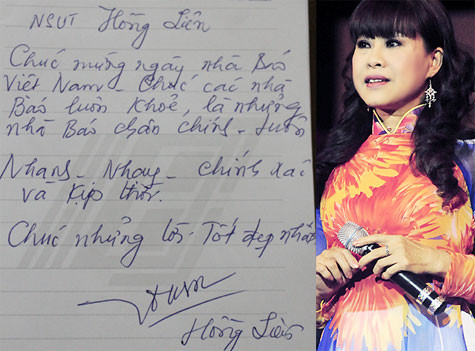 NSƯT Hồng Liên
Chúc mừng ngày nhà Báo
Việt Nam - Chúc các nhà
Báo luôn khoẻ, là những
nhà Báo chân chính - luôn
Nhanh - Nhạy - chính xác
và kịp thời.
Chúc những lời Tốt đẹp nhất
Hồng Liên